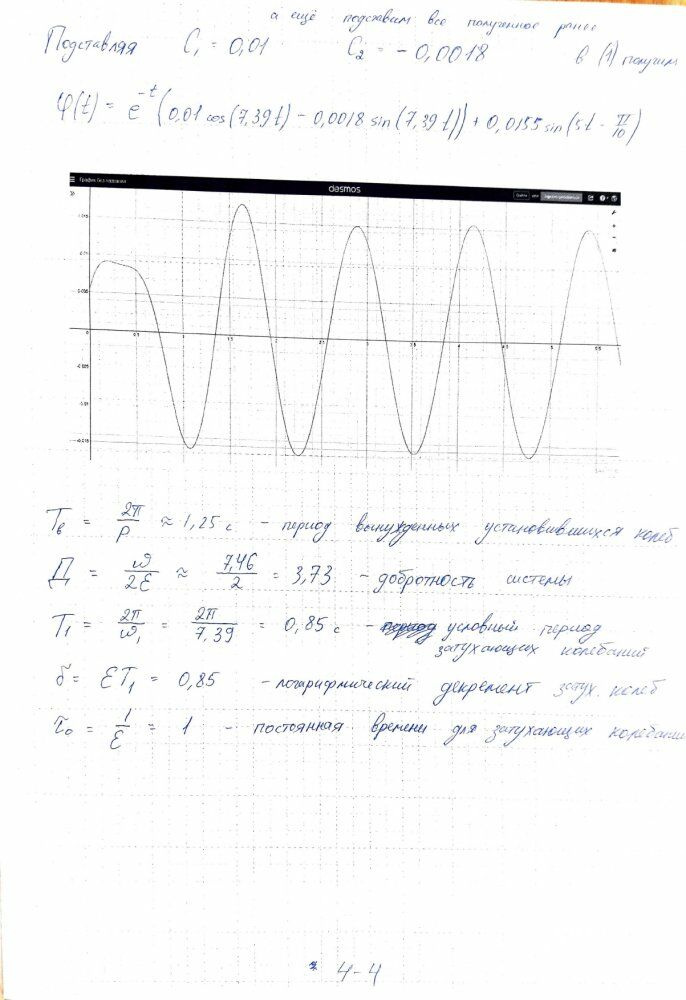 а ещё подставим все полученное ранее
Подставляя C₁ = 0,01 C₂ = - 0,0018 в (1) получим
φ(t) = e^{-t} (0,01 cos(7,39t) - 0,0018 sin(7,39t)) + 0,0155 sin(5t - π/10)
График без названия desmos
0.015
0.01
0.005
0 0.5 1 1.5 2 2.5 3 3.5 4 4.5 5 5.5
-0.005
-0.01
-0.015
Tв = 2π/p ≈ 1,25 с - период вынужденных установившихся колеб
Д = ω/2ε ≈ 7,46/2 = 3,73 - добротность системы
T₁ = 2π/ω₁ = 2π/7,39 = 0,85 с - условный период
затухающих колебаний
δ = εT₁ = 0,85 - логарифмический декремент затух. колеб
τ₀ = 1/ε = 1 - постоянная времени для затухающих колебаний
4-4